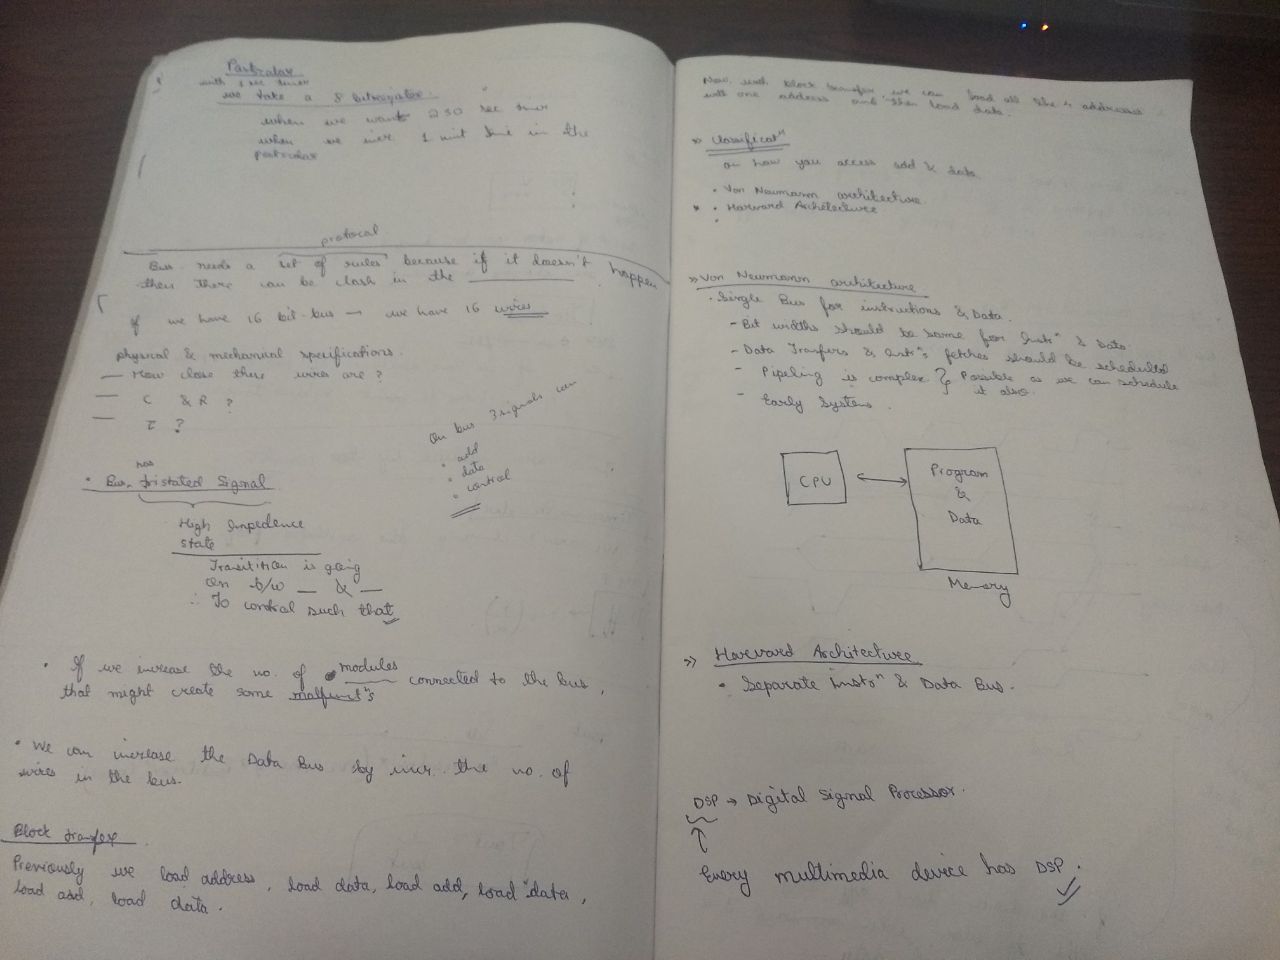 Postscalar
with 1 sec timer
we take a 8 bit register.
when we want 250 sec timer
when we incr 1 unit time in the
postscalar
protocol
Bus needs a set of rules because if it doesn't happen
then there can be clash in the
If we have 16 bit-bus → we have 16 wires
physical & mechanical specifications.
— How close these wires are?
— C & R ?
— τ ?
On bus 3 signals can
• add
• data
• control
has
• Bus, tristated Signal
High Impedence
state
Transition is going
on b/w — & —
∴ To control such that
• If we increase the no. of modules connected to the bus,
that might create some malfunctⁿs
• We can increase the Data Bus by incr. the no. of
wires in the bus.
Block transfer
Previously we load address, load data, load add, load data,
load add, load data.
Now, with block transfer we can load all the 4 addresses
with one address and then load data.
» Classificatⁿ
on how you access add & data
• Von Neumann architecture.
* • Harvard Architecture
» Von Neumann architecture
• Single Bus for instructions & Data.
- Bit widths should be same for Instrⁿ & Data.
- Data Tranfers & Instrⁿs fetches should be scheduled
- Pipeling is complex } Possible as we can schedule
it also.
- Early Systems.
CPU
Program
&
Data
Memory
» Harvard Architecture
• Separate instrⁿ & Data Bus.
DSP → Digital Signal Processor.
Every multimedia device has DSP.